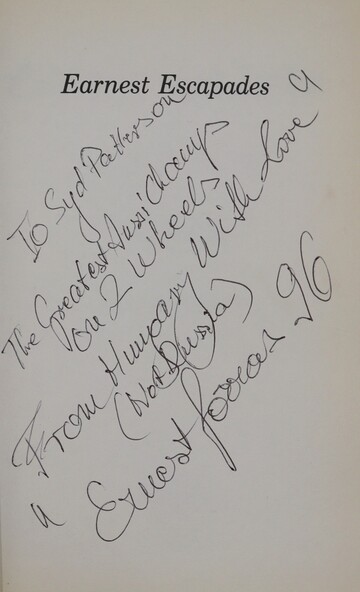 Earnest Escapades
To Syd Patterson
The Greatest Aussi Champs
on 2 Wheels
" From Hungary With Love "
(Not Russia)
Ernest 96